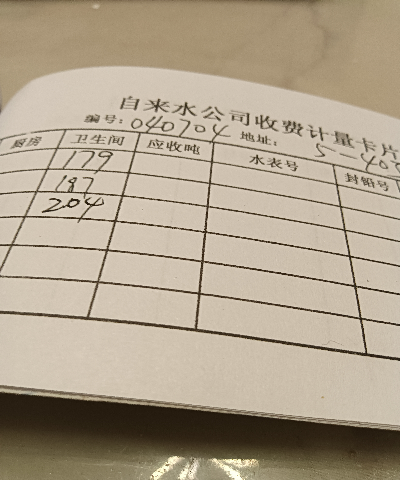 自来水公司收费计量卡片
编号: 040704 地址: 5-40
厨房 卫生间 应收吨 水表号 封铅号
179
187
204